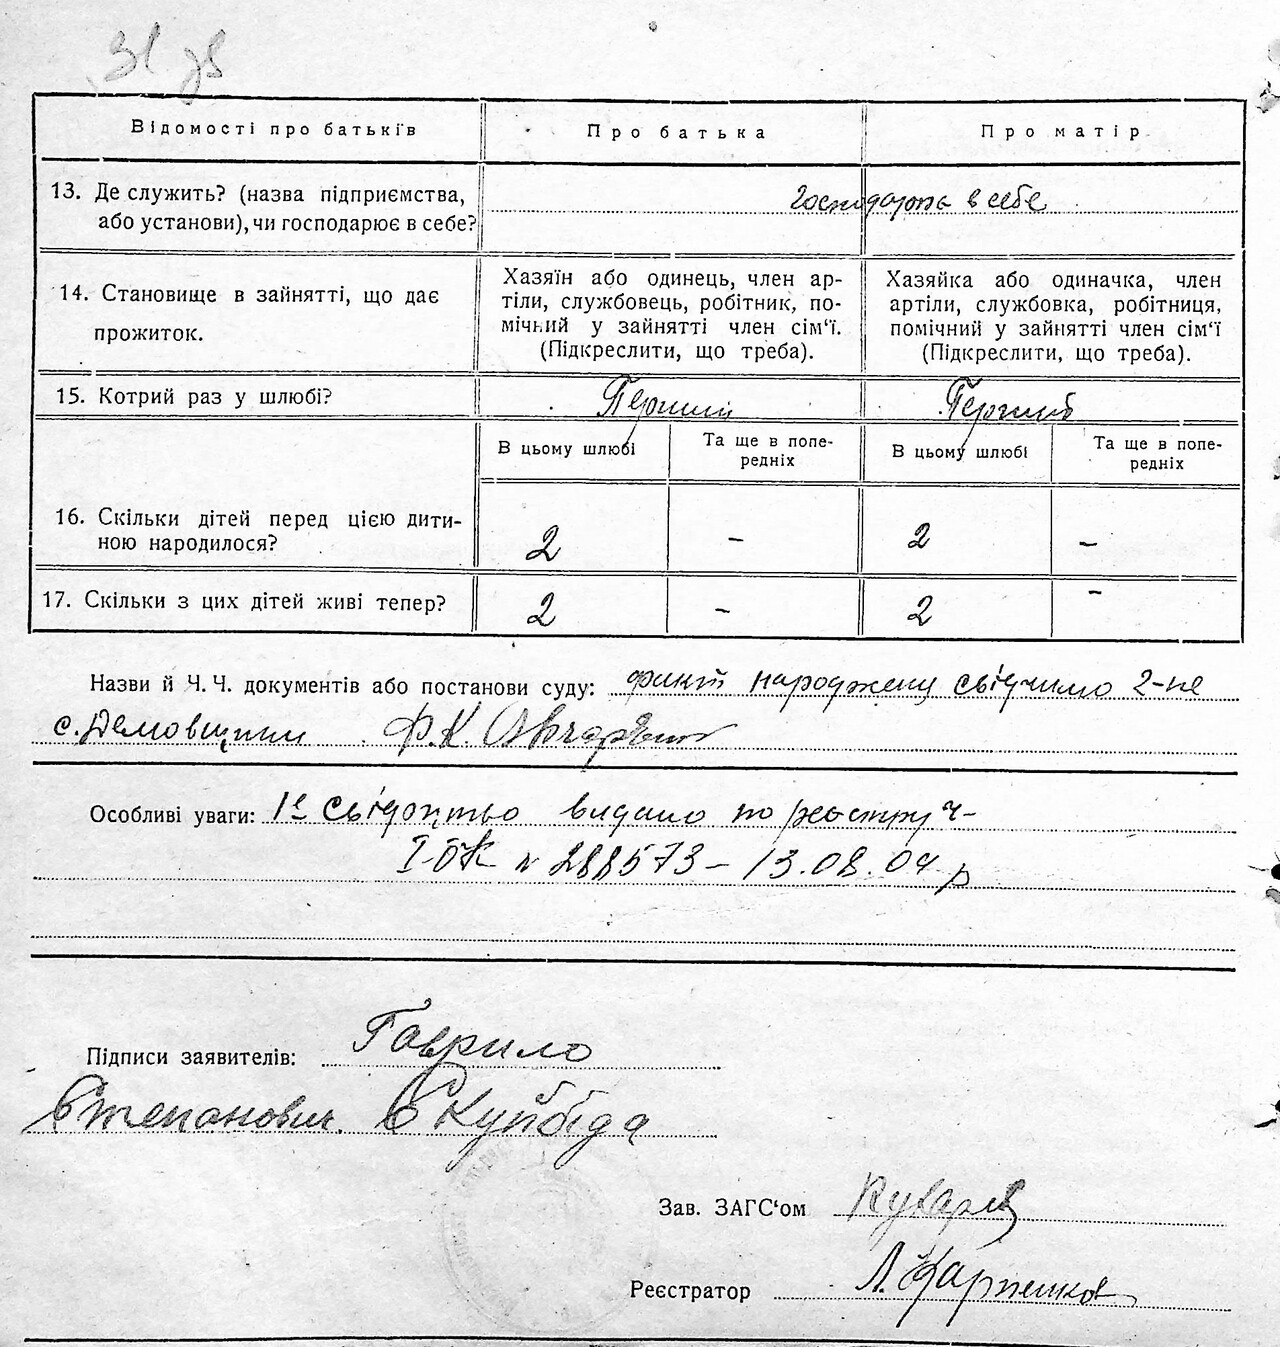 Відомості про батьків
Про батька
Про матір
13. Де служить? (назва підприємства,
або установи), чи господарює в себе?
господарює в себе
14. Становище в зайнятті, що дає
прожиток.
Хазяїн або одинець, член ар-
тілі, службовець, робітник, по-
мічний у зайнятті член сім'ї.
(Підкреслити, що треба).
Хазяйка або одиначка, член
артіли, службовка, робітниця,
помічний у зайнятті член сім'ї
(Підкреслити, що треба).
15. Котрий раз у шлюбі?
Перший
Перший
В цьому шлюбі
Та ще в попе-
редніх
В цьому шлюбі
Та ще в попе-
редніх
16. Скільки дітей перед цією дити-
ною народилося?
2 - 2 -
17. Скільки з цих дітей живі тепер?
2 - 2 -
Назви й Ч. Ч. документів або постанови суду: факт 2-не
с. Демовщини Ф.К.
Особливі уваги: видано по реєстру
№ 288573 - 13.08.04 р
Підписи заявителів: Гаврило
Степанович Скуйбіда
Зав. ЗАГС'ом
Реєстратор Л. Карпенков